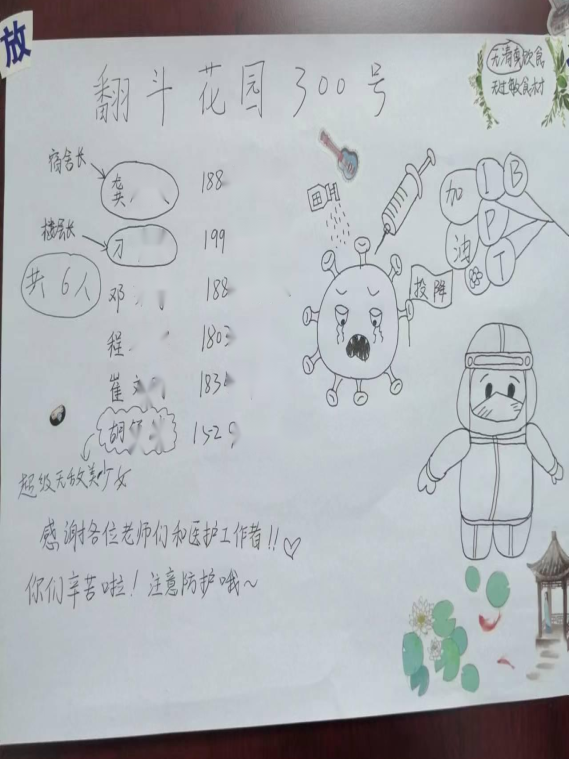 放
翻斗花园300号
无清真饮食
无过敏食材
宿舍长
龚 188
楼层长
刁 199
共6人
邓 188
程 1803
崔 183
胡 1529
超级无敌美少女
加油
IBPT
投降
感谢各位老师们和医护工作者!!♡
你们辛苦啦!注意防护哦~